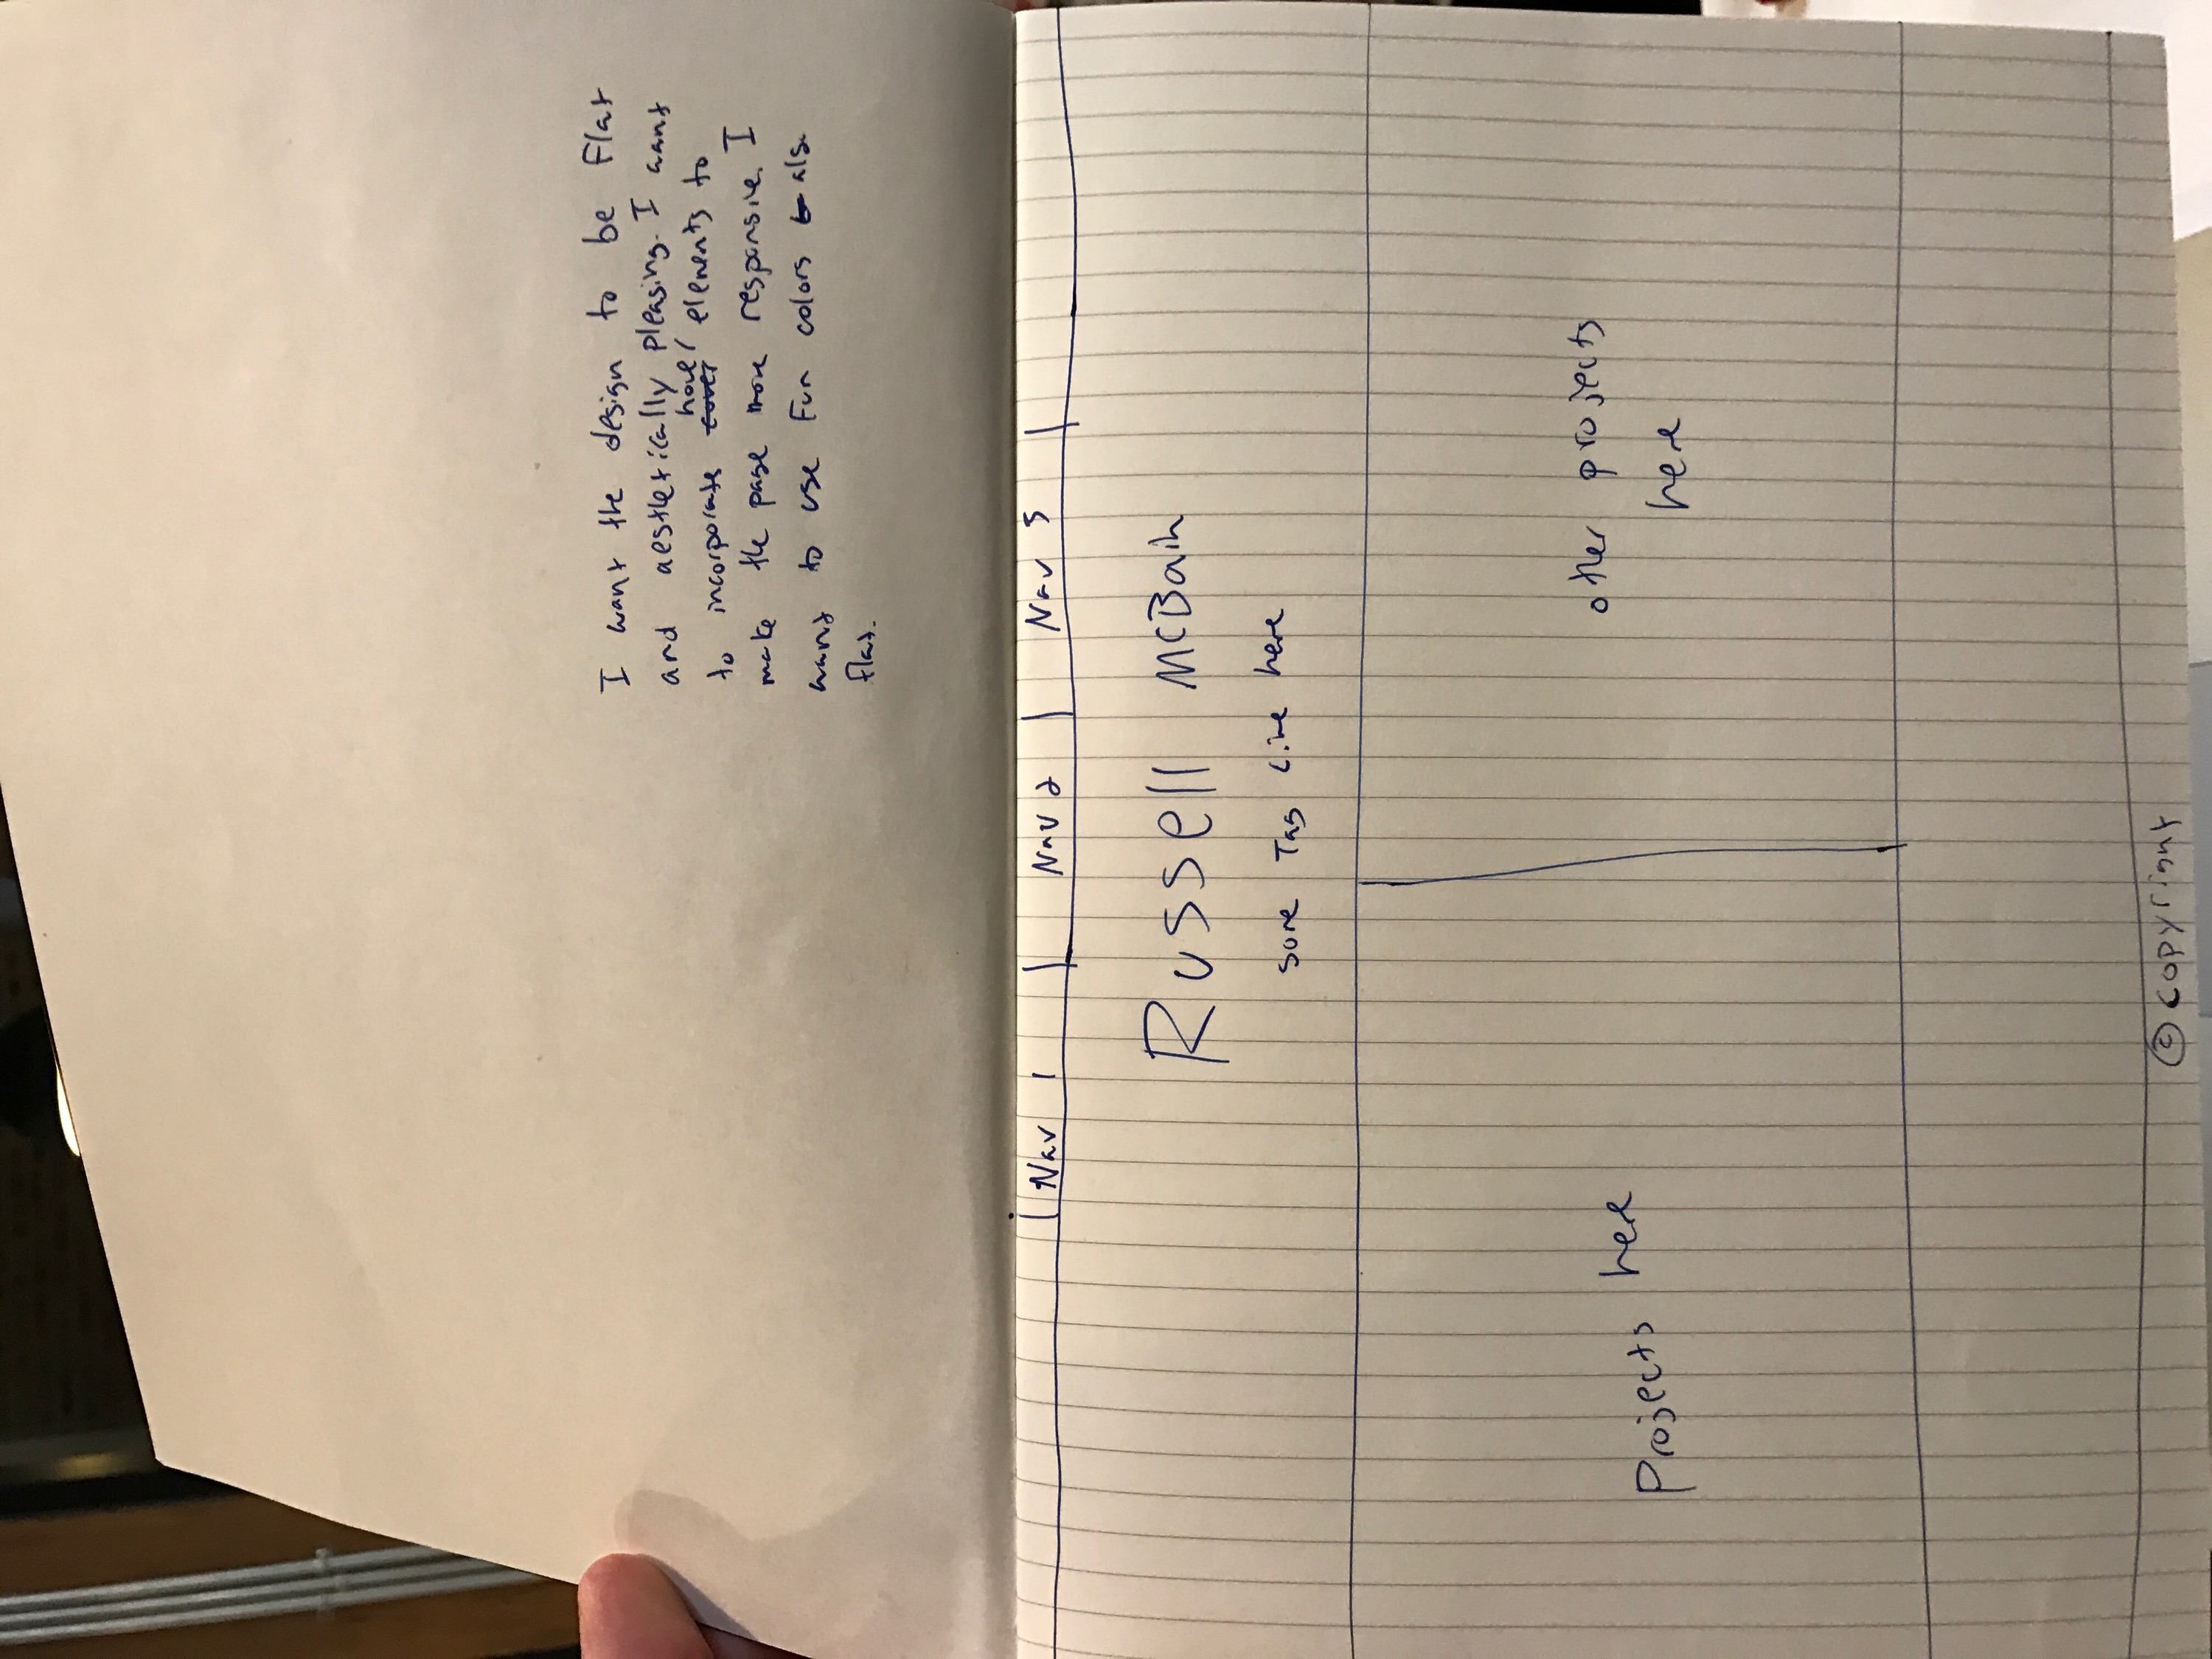 I want the design to be Flat
and aesthetically pleasing. I want
to incorporate hover elements to
make the page more responsive. I
want to use Fun colors also
flat.
Nav 1 Nav 2 Nav 3
Russell McBain
Some Tag Line here
Projects here
other projects
here
© copyright